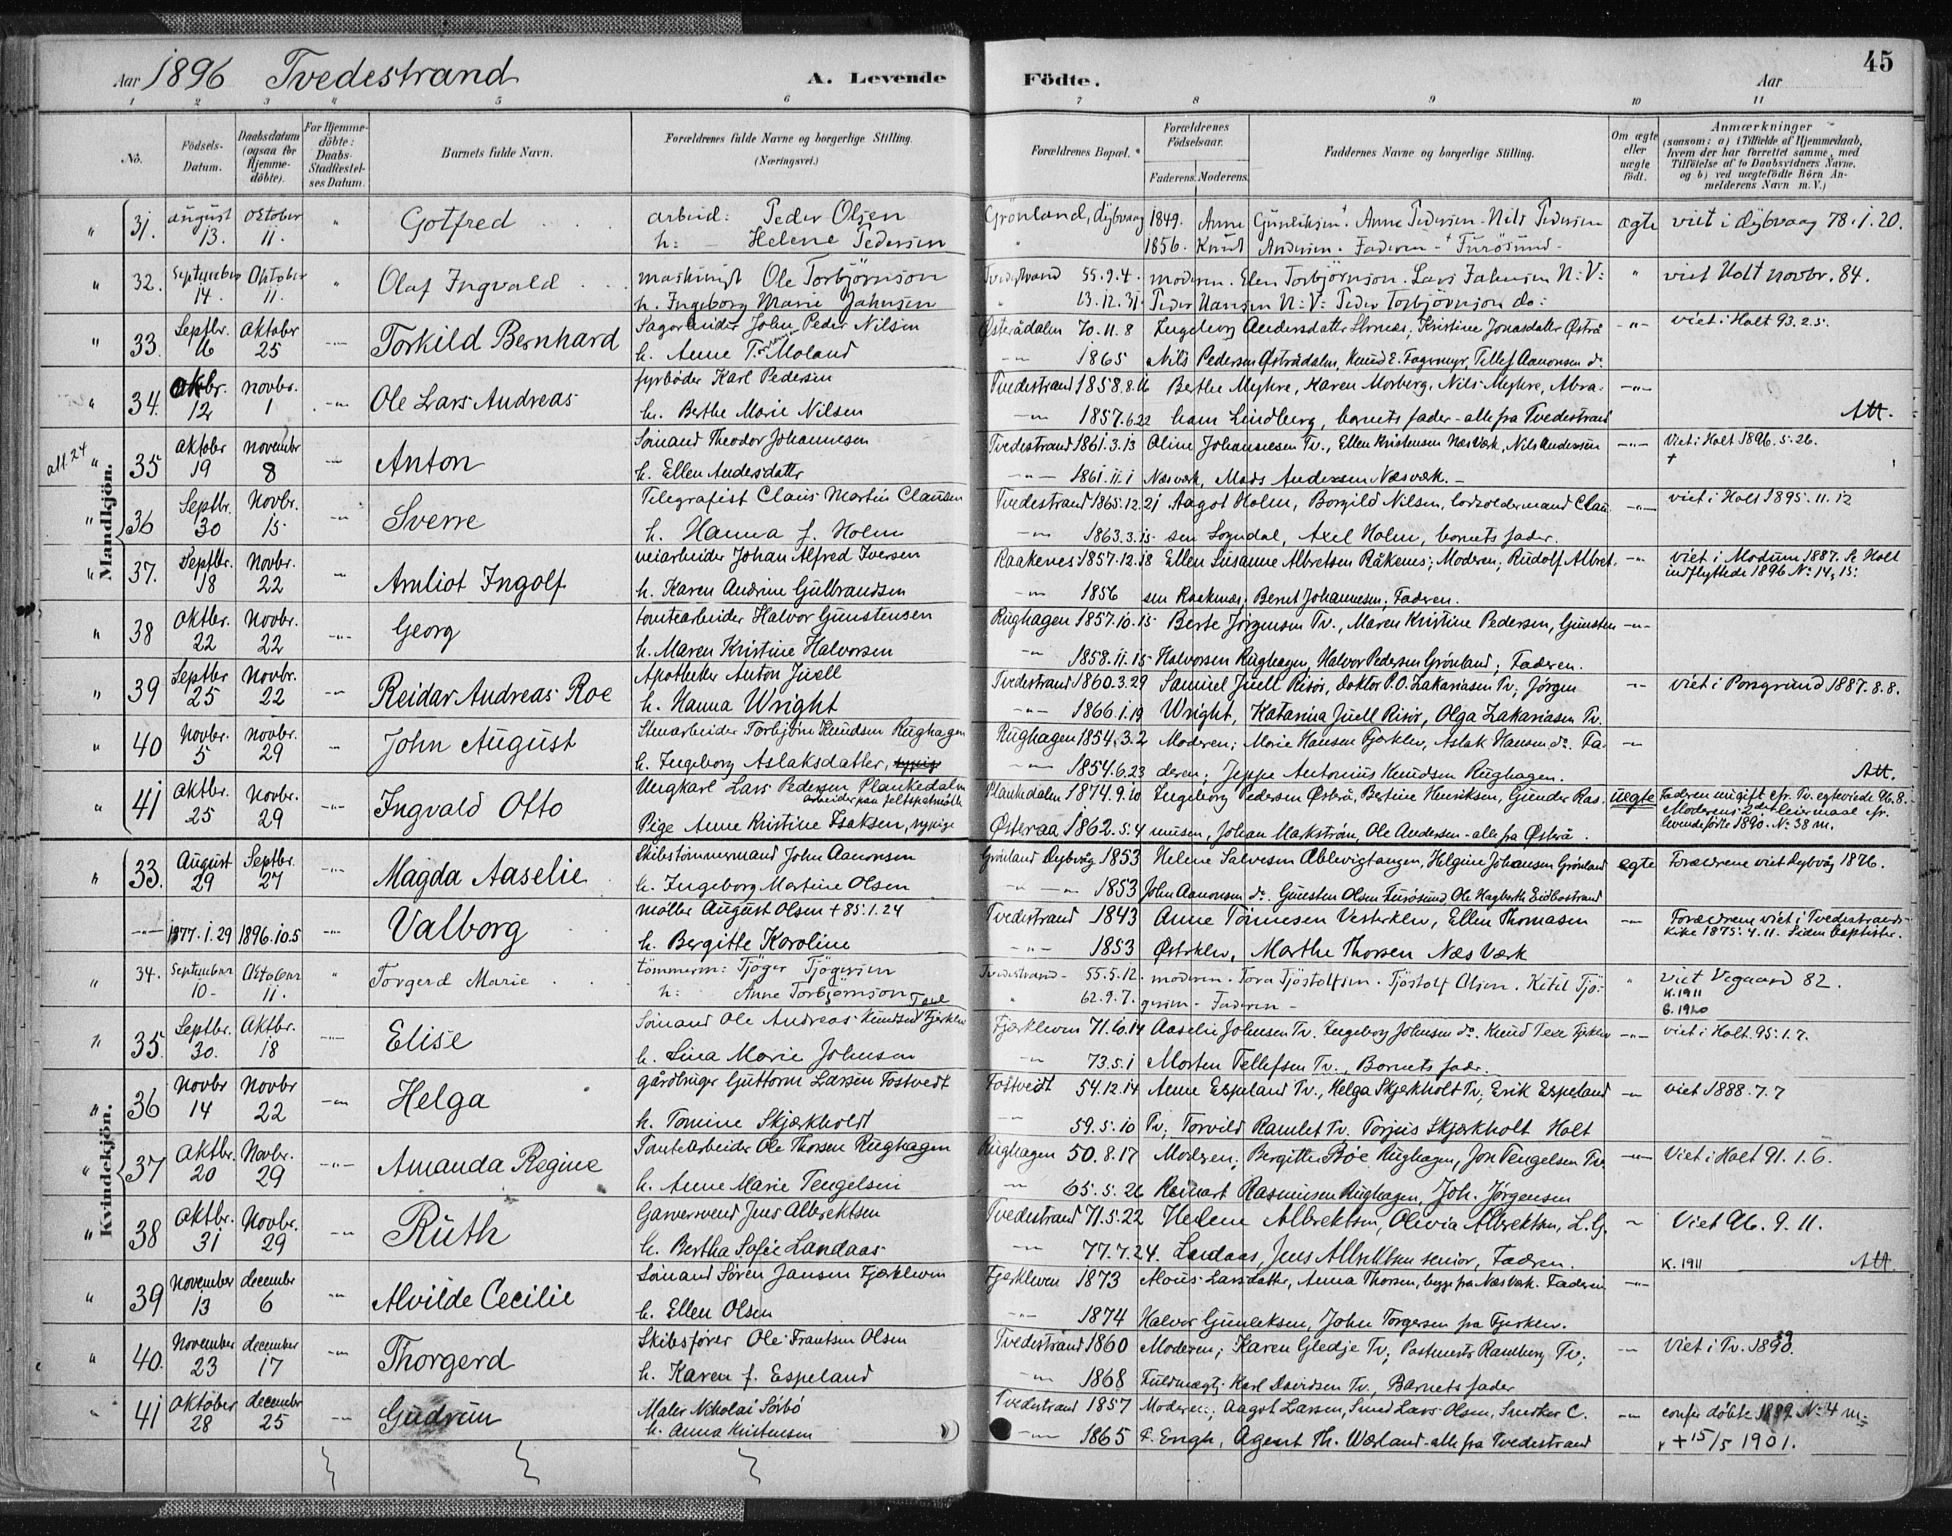 45
Aar 1896 Tvedestrand A. Levende Födte. Aar
1 2 3 4 5 6 7 8 9 10 11
No. Födsels-Datum. Daabsdatum (ogsaa for Hjemme-döbte). For Hjemme-döbte: Daabs-Stadfæstel-ses Datum. Barnets fulde Navn. Forældrenes fulde Navne og borgerlige Stilling. (Næringsvei.) Forældrenes Bopæl. Forældrenes Födselsaar. Faderens. Moderens. Faddernes Navne og borgerlige Stilling. Om ægte eller uægte födt. Anmærkninger (saasom: a) i Tilfælde af Hjemmedaab, hvem der har forrettet samme, med Tilföielse af to Daabsvidners Navne, og b) ved uægtefödte Börn Anmelderens Navn m. V.)
Mandkjön.
31. august 13. oktober 11. " Gotfred arbeid: Peder Olsen Grönland, dybvaag 1849. Anne Gunleiksen Anne Pedersen Nils Pedersen ægte viet i dybvaag 78.1.20.
h: Helene Pedersen " 1856. Knud Andersen. Faderen Furösund
32. September 14. Oktober 11. " Olaf Ingvald maskinist Ole Torbjörnson Tvedestrand 55.9.4. moderen. Elen Torbjörnson. Lars Jahnsen N:V: " viet Holt novbr. 84.
h. Ingeborg Marie Jahnsen " 13.12.31. Peder Hansen N:V: Peder Torbjörnson do:
33. Septbr. 16 Oktober 25 Torkild Bernhard Sagarbeider John Peder Nilsen Österådalen 70.11.8 Ingeborg Andersdatter, Kristine Jonasdatter Österå viet i Holt 93.2.5.
h. Anne T. Moland 1865 Nils Pedersen Österådalen, Knud E. Fagermyr, Tellef Aanonsen do.
34. Oktbr. 12 novbr. 1 Ole Lars Andreas fyrböder Karl Pedersen Tvedestrand 1858.8.16 Berthe Myhre, Karen Morberg, Nils Myhre, Abra-
h. Berthe Marie Nilsen 1857.6.22 ham Lindberg, barnets fader - alle fra Tvedestrand Att.
att. 24 35 oktober 19 november 8 Anton Sömand Theodor Johannesen Tvedestrand 1861.3.13 Oline Johannesen Tv., Ellen Kristensen Næs Værk, Nils Andersen Viet i Holt 1896.5.26.
h. Ellen Andersdatter 1861.11.1 Næsværk, Mads Andersen Næsværk. +
36 Septbr. 30 Novbr. 15 Sverre Telegrafist Claus Martin Clausen Tvedestrand 1865.12.21 Aagot Holm, Borgild Nilsen, lodsoldermand Clau- viet i Holt 1895.11.12
h. Hanna f. Holm 1863.3.15 sen Sogndal, Axel Holm, barnets fader.
37. Septbr. 18 Novbr. 22 Arnliot Ingolf veiarbeider Johan Alfred Iversen Raakenes 1857.12.18 Ellen Susanne Albretsen Råkenes; Moderen; Rudolf Albret- viet i Modum 1887. fr Holt
h. Karen Andrine Gulbrandsen 1856 sen Raakenæs; Bernt Johannesen; Faderen. indflyttede 1896 No 14, 15.
38 Oktbr. 22 Novbr. 22 Georg tomtearbeider Halvor Gunstensen Rughagen 1857.10.15 Berte Jörgensen Tv., Maren Kristine Pedersen, Gunsten
h. Maren Kristine Halvorsen 1858.11.15 Halvorsen Rughagen, Halvor Pedersen Grönland; Faderen.
39 Septbr 25 Novbr. 22 Reidar Andreas Roe Apotheker Anton Juell Tvedestrand 1860.3.29 Samuel Juell Risör, Doktor P.O. Zakariasen Tv; Jörgen viet i Porsgrund 1887.8.8.
h. Hanna Wright 1866.1.19 Wright, Katarina Juell Risör, Olga Zakariasen Tv.
40 Novbr. 5 novbr. 29 John August Stenarbeider Torbjörn Knudsen Rughagen Rughagen 1854.3.2 Moderen; Marie Hansen Fjærklev, Aslak Hansen do. Fa-
h. Ingeborg Aslaksdatter, 1854.6.23 deren; Jeppe Antonius Knudsen Rughagen. Att.
41 Oktbr. 25 Novbr. 29 Ingvald Otto Ungkarl Lars Pedersen Plankedalen Plankedalen 1874.9.10 Ingeborg Pedersen Österå, Bertine Henriksen, Gunder Ras- uegte Faderen ungift efr. Tv. egteviede 96.8.
arbeider paa feltspatmölle Moderens 2det leiermaal cfr.
Pige Anne Kristine Isaksen, Österaa 1862.5.4 mussen, Johan Markström, Ole Andersen - alle fra Österå. levende födte 1890. No 38 m.
Kvindekjön.
33. August 29 Septbr. 27 Magda Aaselie Skibstömmermand John Aanonsen Grönland Dybvåg 1853 Helene Salvesen Ablevigtangen, Helgine Johansen Grönland egte Forældrene viet Dybvåg 1876.
h. Ingeborg Martine Olsen 1853 John Aanonsen do. Gunsten Olsen Furösund Ole Hagbarth Eidbostrand
1877.1.29 1896.10.5 Valborg möller August Olsen + 85.1.24 Tvedestrand 1843 Anne Tönnesen Vesterklev, Ellen Thomasen Forældrene viet i Tvedestrands
h. Bergitte Karoline 1853 Österklev, Marthe Thorsen Næs Værk Kirke 1875.4.11. Siden baptister.
34. September 10 Oktober 11. " Torgerd Marie tömmerm: Tjöger Tjögersen Tvedestrand 55.5.12. moderen. Tora Tjöstolfsen. Tjöstolf Olsen. Kitil Tjö- " viet Vegaard 82.
h: Anne Torbjörnson " 62.9.7. gersen - Faderen - K. 1911
6.1920
35. Septbr. 30. Oktbr. 18 Elise Sömand Ole Andreas Knudsen Texe Fjerklev Fjærkleven 71.10.14 Aaselie Johnsen Tv. Ingeborg Johnsen do. Knud Texe Fjerklev viet i Holt. 95.1.7.
h. Lina Marie Johnsen 73.5.1 Morten Tellefsen Tv., Barnets fader.
36 Novbr 14 Novbr 22 Helga gårdbruger Guttorm Larsen Fostvedt Fostveit 54.12.14 Anne Espeland Tv., Helga Skjærkholt Tv; Erik Espeland viet 1888.7.7
h. Tomine Skjærkholdt 59.5.10 Tv; Torvild Ramlet Tv. Torjus Skjærkholt Holt
37 Oktbr. 20 Novbr. 29 Amanda Regine Tomtearbeider Ole Thorsen Rughagen Rughagen 50.8.17 Moderen; Bergitte Böe Rughagen, Jon Tengelsen Tv. Viet i Holt 91.1.6.
h. Anne Marie Tengelsen 65.5.26 Reinart Rasmussen Rughagen, Joh. Jörgensen
38 Oktbr. 31 Novbr. 29 Ruth Garversvend Jens Albrektsen Tvedestrand 71.5.22 Helene Albrektsen, Olivia Albrektsen, L.G. Viet 96.9.11.
h. Bertha Sofie Landaas 77.7.24. Landaas, Jens Albrektsen senior, Faderen. K. 1911 Att.
39 November 13 december 6 Alvilde Cecilie Sömand Sören Jansen Fjærkleven Fjerkleven 1873 Larsdatter, Anna Thorsen, begge fra Næs Værk. Faderen
h. Ellen Olsen 1874 Halvor Gunleksen, John Torgersen fra Fjerklev.
40. November 23 december 17 Thorgerd Skibsförer Ole Frantsen Olsen Tvedestrand 1860 Moderen; Karen Gledje Tv; Postmester Ramberg Tv; Viet i Tv. 1889.
h. Karen f. Espeland 1868 Fuldmægtig Karl Davidsen Tv., Barnets fader
41 Oktober 28 december 25 Gudrun Maler Nikolai Sörbö Tvedestrand 1857 Moderen; Aagot Larsen, Smed Lars Olsen, Snedker C. confer döbte 1899. No 4 m.
h. Anna Kristensen 1865 F. Engh, Agent Th. Wærland - alle fra Tvedestrand + 15/5 1901.